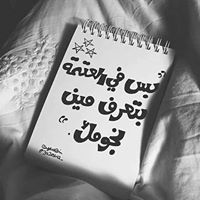 "بس في العتمة
بتعرف مين
نجومك"